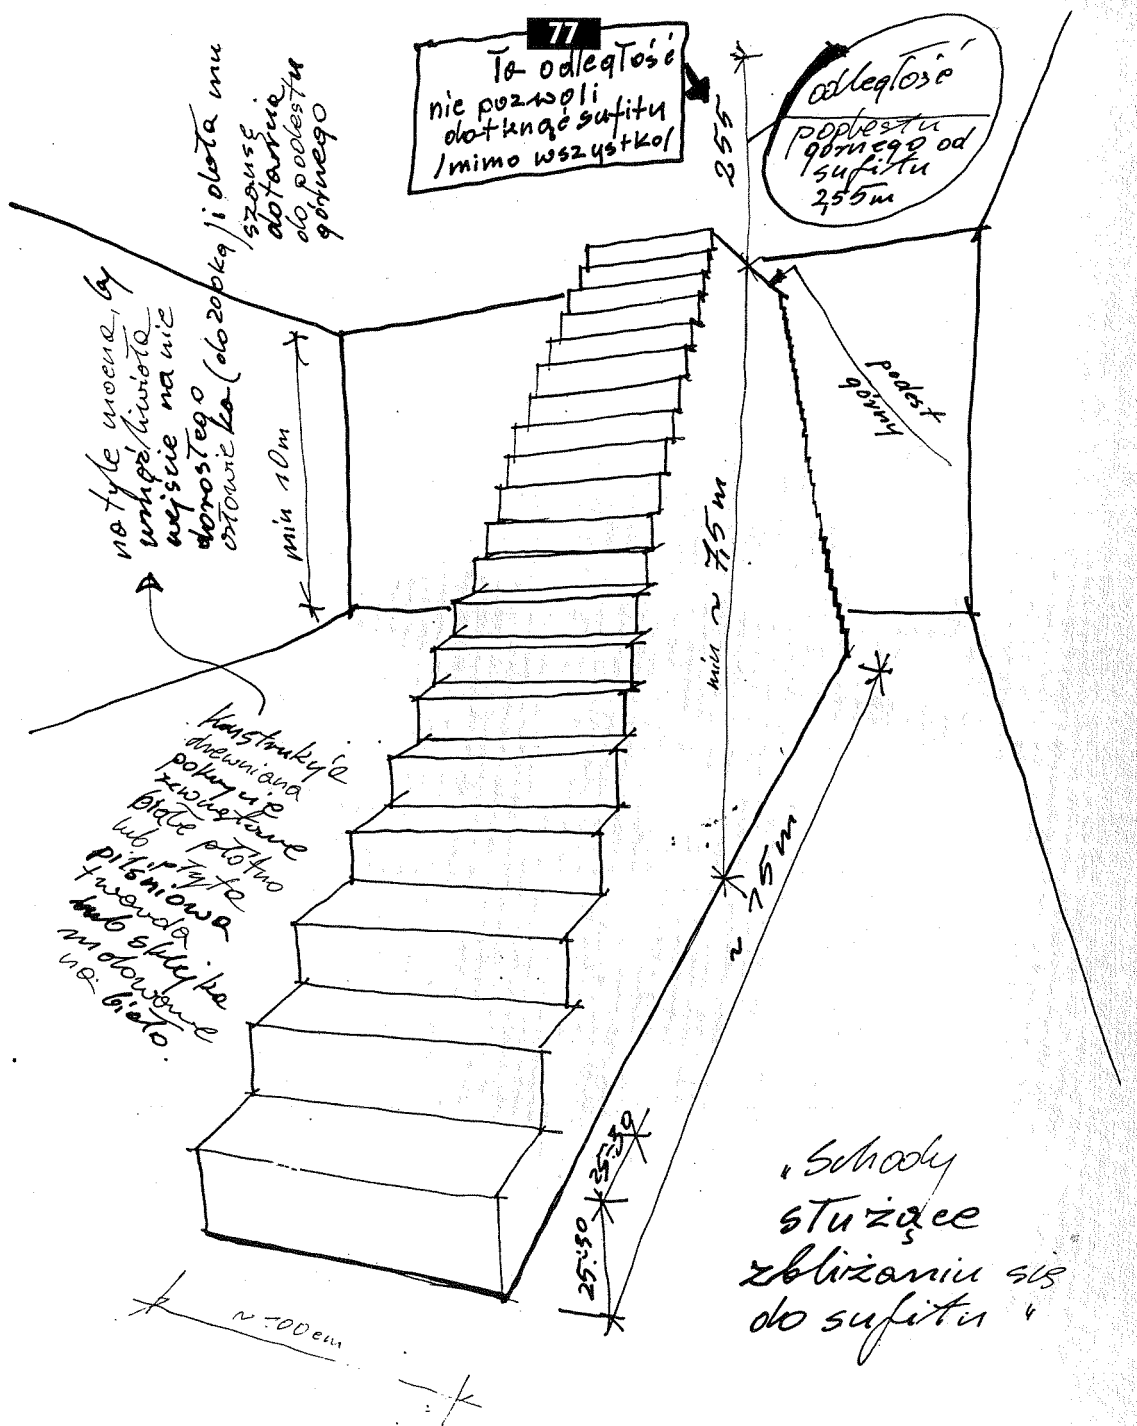 77
Ta odległość
nie pozwoli
dotknąć sufitu
/mimo wszystko/
255
odległość
podestu
górnego od
sufitu
2,55m
na tyle mocna, by
umożliwiała
wejście na nie
dorosłego
człowieka (do 200 kg) i dała mu
szansę
dotarcia
do podestu
górnego
min 10m
podest
górny
min ~ 7,5 m
Konstrukcja
drewniana
pokrycie
zewnętrzne
białe płótno
lub płyta
pilśniowa
twarda
lub sklejka
malowane
na biało.
~ 7,5 m
25÷30
25÷30
~ 100 cm
„Schody
służące
zbliżaniu się
do sufitu"